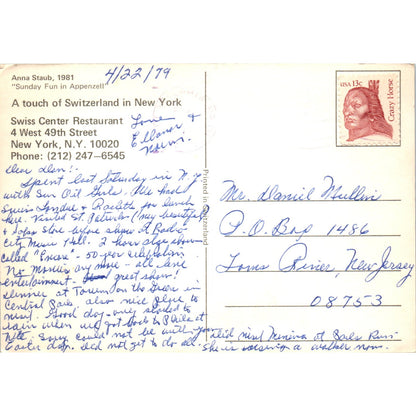 Anna Staub, 1981
"Sunday Fun in Appenzell"
4/22/79
A touch of Switzerland in New York
Swiss Center Restaurant
4 West 49th Street
New York, N.Y. 10020
Phone: (212) 247-6545
Love
Eleanor &
Printed in Switzerland
USA 13c
Crazy Horse
Dear Dan!
Spent last Saturday in N.Y.
with Sun Oil Girls. We had
Swiss Fondue & Raclette for lunch
here. Visited St. Patrick's (very beautiful)
& before show at Radio
City Music Hall. 2 hour show
called "Encore" - 50 year celebration
No movies any more - all live
entertainment - great show!
dinner at Tavern on the Green in
Central Park also nice place to
visit. Good day - only started to
rain when we got back to Phila at
Nite. Sorry could not be with you
Easter day. Did not get to do all
did visit Minerva at
She is using a walker now.
Mr. Daniel Mullin
P.O. Box 1486
Toms River, New Jersey
08753